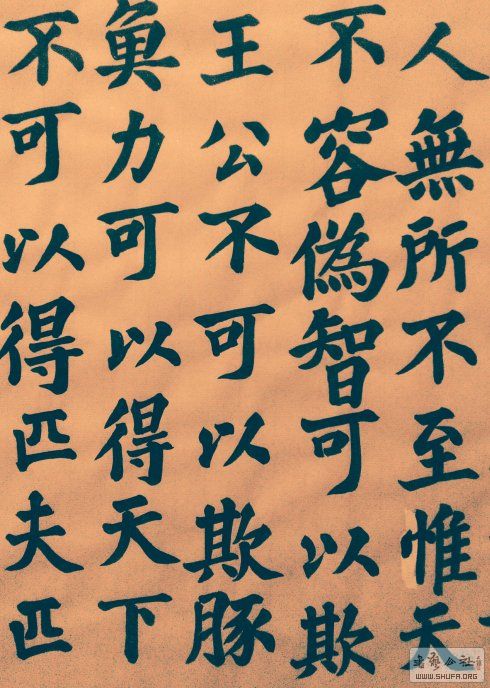 人無所不至惟天
不容偽智可以欺
王公不可以欺豚
魚力可以得天下
不可以得匹夫匹
WWW.SHUFA.ORG